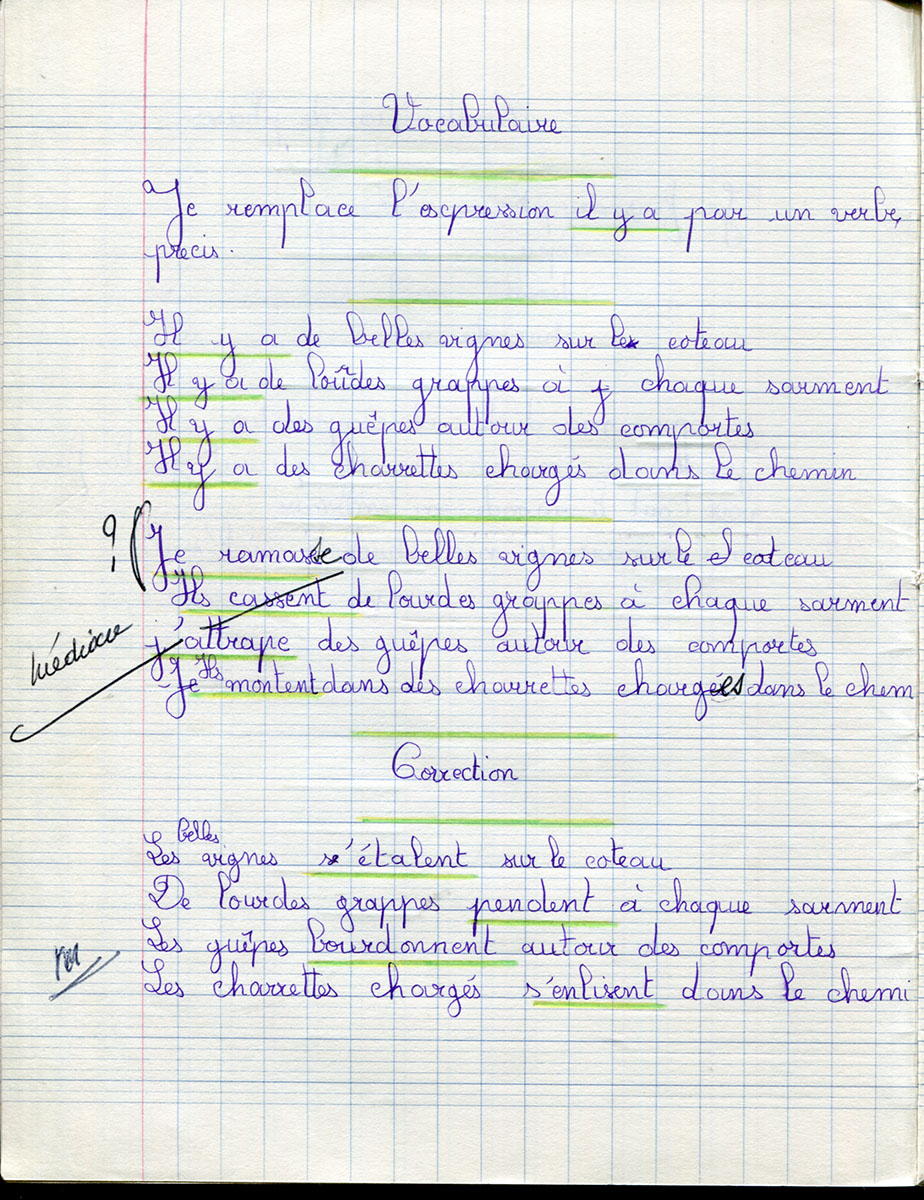 Vocabulaire
Je remplace l'escpression il y a par un verbe
précis.
Il y a de belles vignes sur le coteau
Il y a de lourdes grappes à chaque sarment
Il y a des guêpes autour des comportes
Il y a des charrettes chargés dans le chemin
? Je ramasse de belles vignes sur le coteau
Ils cassent de lourdes grappes à chaque sarment
médiocre j'attrape des guêpes autour des comportes
Ils montent dans des charrettes chargées dans le chem
Correction
Les belles vignes s'étalent sur le coteau
De lourdes grappes pendent à chaque sarment
Les guêpes bourdonnent autour des comportes
vu Les charrettes chargés s'enlisent dans le chemi